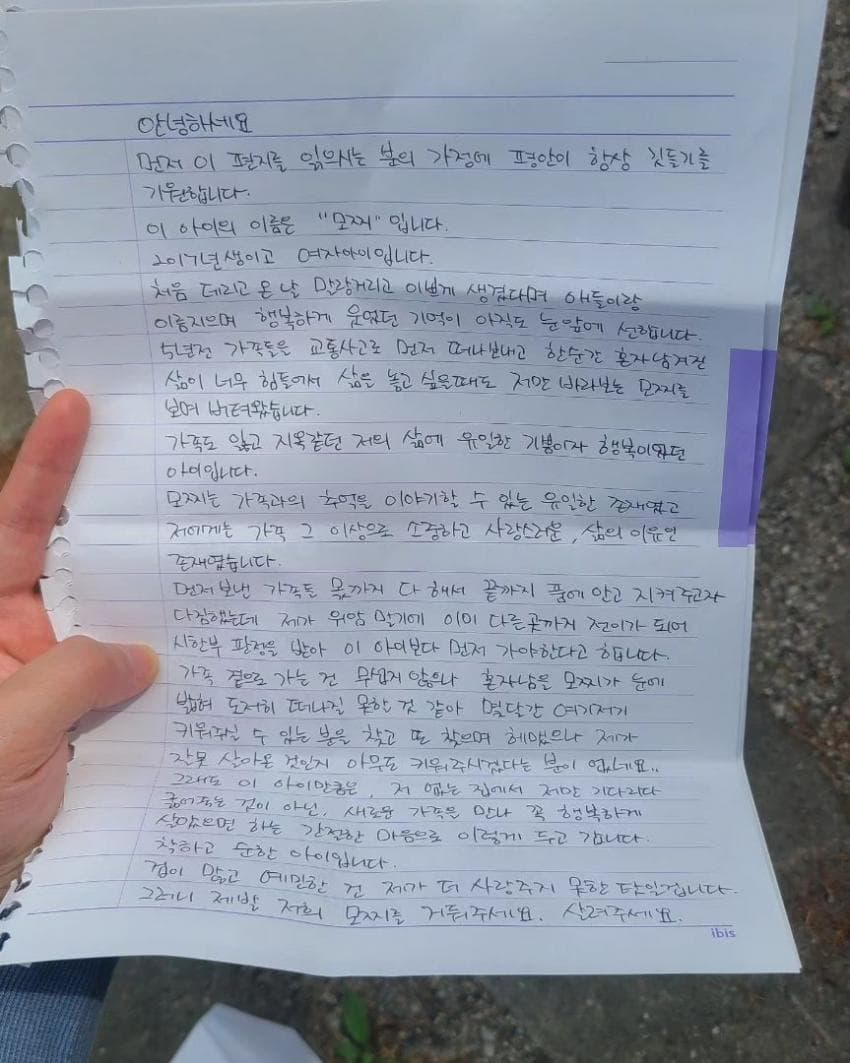 안녕하세요
먼저 이 편지를 읽으시는 분의 가정에 평안이 항상 깃들기를
기원합니다.
이 아이의 이름은 "모찌" 입니다.
2017년생이고 여자아이입니다.
처음 데리고 온 날 말랑거리고 이쁘게 생겼다며 애들이랑
이름지으며 행복하게 웃었던 기억이 아직도 눈앞에 선합니다.
5년전 가족들을 교통사고로 먼저 떠나보내고 한순간 혼자남겨진
삶이 너무 힘들어서 삶을 놓고 싶을때도 저만 바라보는 모찌를
보며 버텨왔습니다.
가족도 잃고 지옥같던 저의 삶에 유일한 기쁨이자 행복이었던
아이입니다.
모찌는 가족과의 추억을 이야기할 수 있는 유일한 존재였고
저에게는 가족 그 이상으로 소중하고 사랑스러운, 삶의 이유인
존재였습니다.
먼저보낸 가족들 몫까지 다 해서 끝까지 품에 안고 지켜주고자
다짐했는데 제가 위암 말기에 이미 다른곳까지 전이가 되어
시한부 판정을 받아 이 아이보다 먼저 가야한다고 합니다.
가족 곁으로 가는 건 무섭지 않으나 혼자남을 모찌가 눈에
밟혀 도저히 떠나질 못할 것 같아 몇달간 여기저기
키워주실 수 있는 분을 찾고 또 찾으며 헤맸으나 제가
잘못 살아온 것인지 아무도 키워주시겠다는 분이 없네요..
그래도 이 아이만큼은, 저 없는 집에서 저만 기다리다
굶어죽는 것이 아닌, 새로운 가족을 만나 꼭 행복하게
살았으면 하는 간절한 마음으로 이렇게 두고 갑니다.
착하고 순한 아이입니다.
겁이 많고 예민한 건 제가 더 사랑주지 못한 탓일겁니다.
그러니 제발 저희 모찌를 거둬주세요. 살려주세요.
ibis